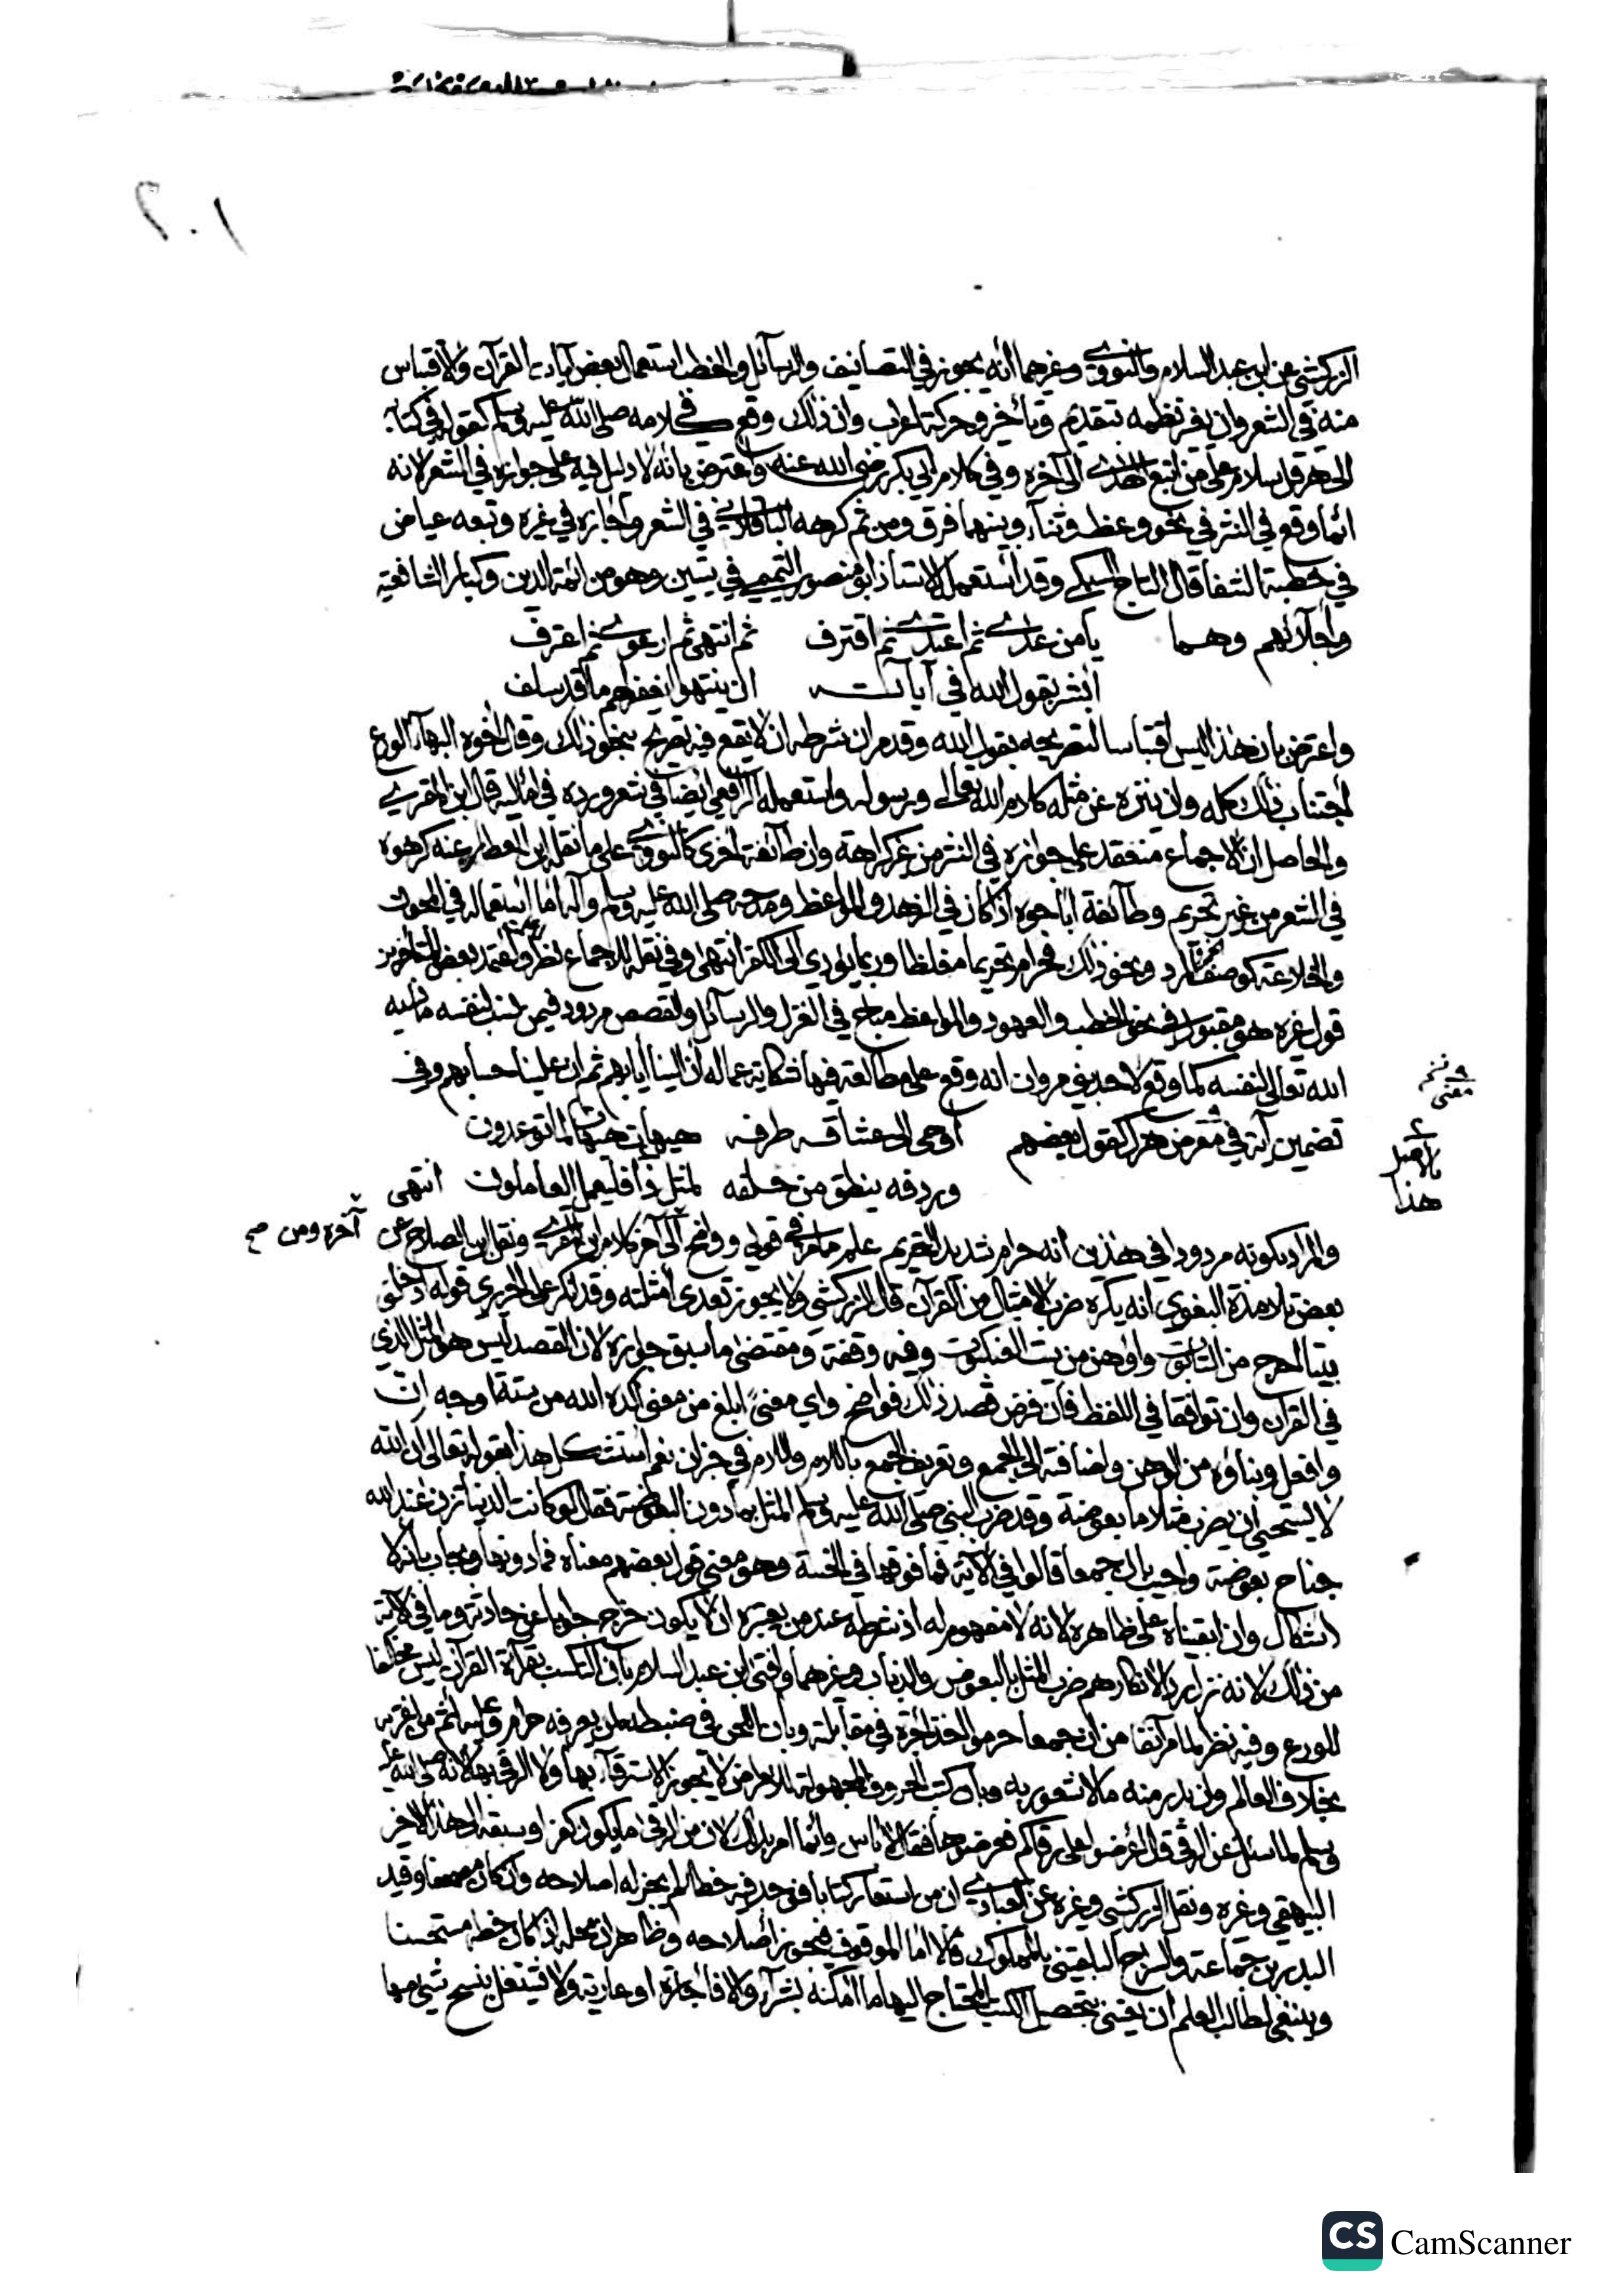 ١٠٢
الزركشي عن ابن عبد السلام والنووي وغيرهما أنه يجوز في التصانيف والرسائل والخطب استعمال بعض آيات القرآن والاقتباس
منه في الشعر وان بغير نظمه بتقديم وتأخير وحركة اعراب وان ذلك وقع في كلامه صلى الله عليه وسلم كقوله في كتابه
الى هرقل سلام على من اتبع الهدى الى آخره وفي كلام ابي بكر رضى الله عنه واعترض بانه لا دليل فيه على جوازه في الشعر لانه
انما وقع في النثر في نحو وعظ وثناء وبينهما فرق ومن ثم كرهه الباقلاني في الشعر واجازه في غيره وتبعه عياض
في خطبة الشفا قال التاج السبكي وقد استعمله الاستاذ ابو منصور التميمي في بيتين وهو من ائمة الدين وكبار الشافعية
واجلائهم وهما يا من عدى ثم اعتدى ثم اقترف ثم انتهى ثم ارعوى ثم اعترف
ابشر بقول الله في آياته ان ينتهوا يغفر لهم ما قد سلف
واعترض بان هذا ليس اقتباسا لتصريحه بقول الله وقدم ان شرطه ان لا يقع فيه تصريح بنحو ذلك وقال اخوه البهاء الورع
اجتناب ذلك كله وان ينزه عن مثله كلام الله تعالى ورسوله واستعمله الرافعي ايضا في شعر ورده في اماليه قال ابن المقري
والحاصل ان الاجماع منعقد على جوازه في النثر من غير كراهة وان طائفة اخرى كالنووي على ما نقله ابن العطار عنه كرهوه
في الشعر من غير تحريم وطائفة اباحوه اذ كان في الزهد والمواعظ ومدحه صلى الله عليه وسلم وآله اما استعماله في المجون
والخلاعة كوصف المرد ونحو ذلك فحرام تحريما مغلظا وربما يؤدي الى الكفر انتهى وفي نقله للاجماع نظر واعتمد بعض المتأخرين
قول غيره هو مقبول في نحو الخطب والعهود والمواعظ مباح في الغزل والرسائل والقصص مردود فيمن ينسب لنفسه ما نسبه
الله تعالى لنفسه كما وقع لاحد بني مروان انه وقع على مطالعة فيها شكاية عماله ان الينا ايابهم ثم ان علينا حسابهم وفي
تضمين آية في معرض هزل كقول بعضهم اوحى الى عشاقه طرفه هيهات هيهات لما توعدون
وردفه ينطق من خلفه لمثل ذا فليعمل العاملون انتهى
والمراد بكونه مردودا في هذين انه حرام شديد التحريم علم مما مر في قولي ووضح الى آخر كلام ابن المقري ونقل ابن الصلاح عن
بعض تلامذة البغوي انه يكره ضرب الامثال من القرآن قال الزركشي ولا يجوز تعدي امثلته وقد انكر على الحريري قوله ادخلني
بيتا احرج من التابوت واوهن من بيت العنكبوت وفيه وقفة ومقتضى ما سبق جوازه لان القصد ليس هو المثل الذي
في القرآن وان توافقا في اللفظ فان فرض قصد ذلك فواضح واي معنى ابلغ من معنى اكده الله من ستة اوجه ان
وافعل وبناؤه من الوهن واضافته الى الجمع وتعريف الجمع باللام واللام في خبر ان نعم استشكل هذا بقوله تعالى ان الله
لا يستحيي ان يضرب مثلا ما بعوضة وقد ضرب النبي صلى الله عليه وسلم المثل بما دون البعوضة فقال لو كانت الدنيا تزن عند الله
جناح بعوضة واجيب بان جمعا قالوا في الآية فما فوقها في الخسة وهو معنى قول بعضهم معناه فما دونها ويجاب بانه لا
اشكال وان ابقيناه على ظاهره لانه لا مفهوم له اذ شرطه عند من يعتبره ان لا يكون خرج جوابا عن حادثة وما في الآية
من ذلك لانه نزل ردا لانكارهم ضرب المثل بالبعوض والذباب وغيرهما وافتى ابن عبد السلام بان التكسب بقراءة القرآن ليس مخالفا
للورع وفيه نظر لما مر آنفا من ان جمعا حرموا اخذ اجرة في مقابلته وبان اللحن في ضبطه لمن يعرفه حرام وعليه اثم من اغتر به
بخلاف العالم وان بدر منه ما لا شعور به وبان كتب الحروف المجهولة للامراض لا يجوز الاسترقاء بها ولا الرقى بها لانه صلى الله عليه
وسلم لما سئل عن الرقى قال اعرضوا على رقاكم فعرضوها فقال لا باس وانما امر بذلك لان من الرقى ما يكون كفرا وسبقه الى هذا الاخير
البيهقي وغيره ونقل الزركشي وغيره عن العبادي ان من استعار كتابا فوجد فيه خطأ لم يجز له اصلاحه وان كان مصحفا وقيد
البدر بن جماعة والسراج البلقيني بالمملوك قالا اما الموقوف فيجوز اصلاحه وظاهر ان محله اذا كان خطه مستحسنا
وينبغي لطالب العلم ان يعتني بتحصيل الكتب المحتاج اليها ما امكنه بشراء والا فاجارة او عارية ولا يشتغل بنسخ شيء منها
معنى
بالاصل
هذا
آخره ومن صح
CS CamScanner